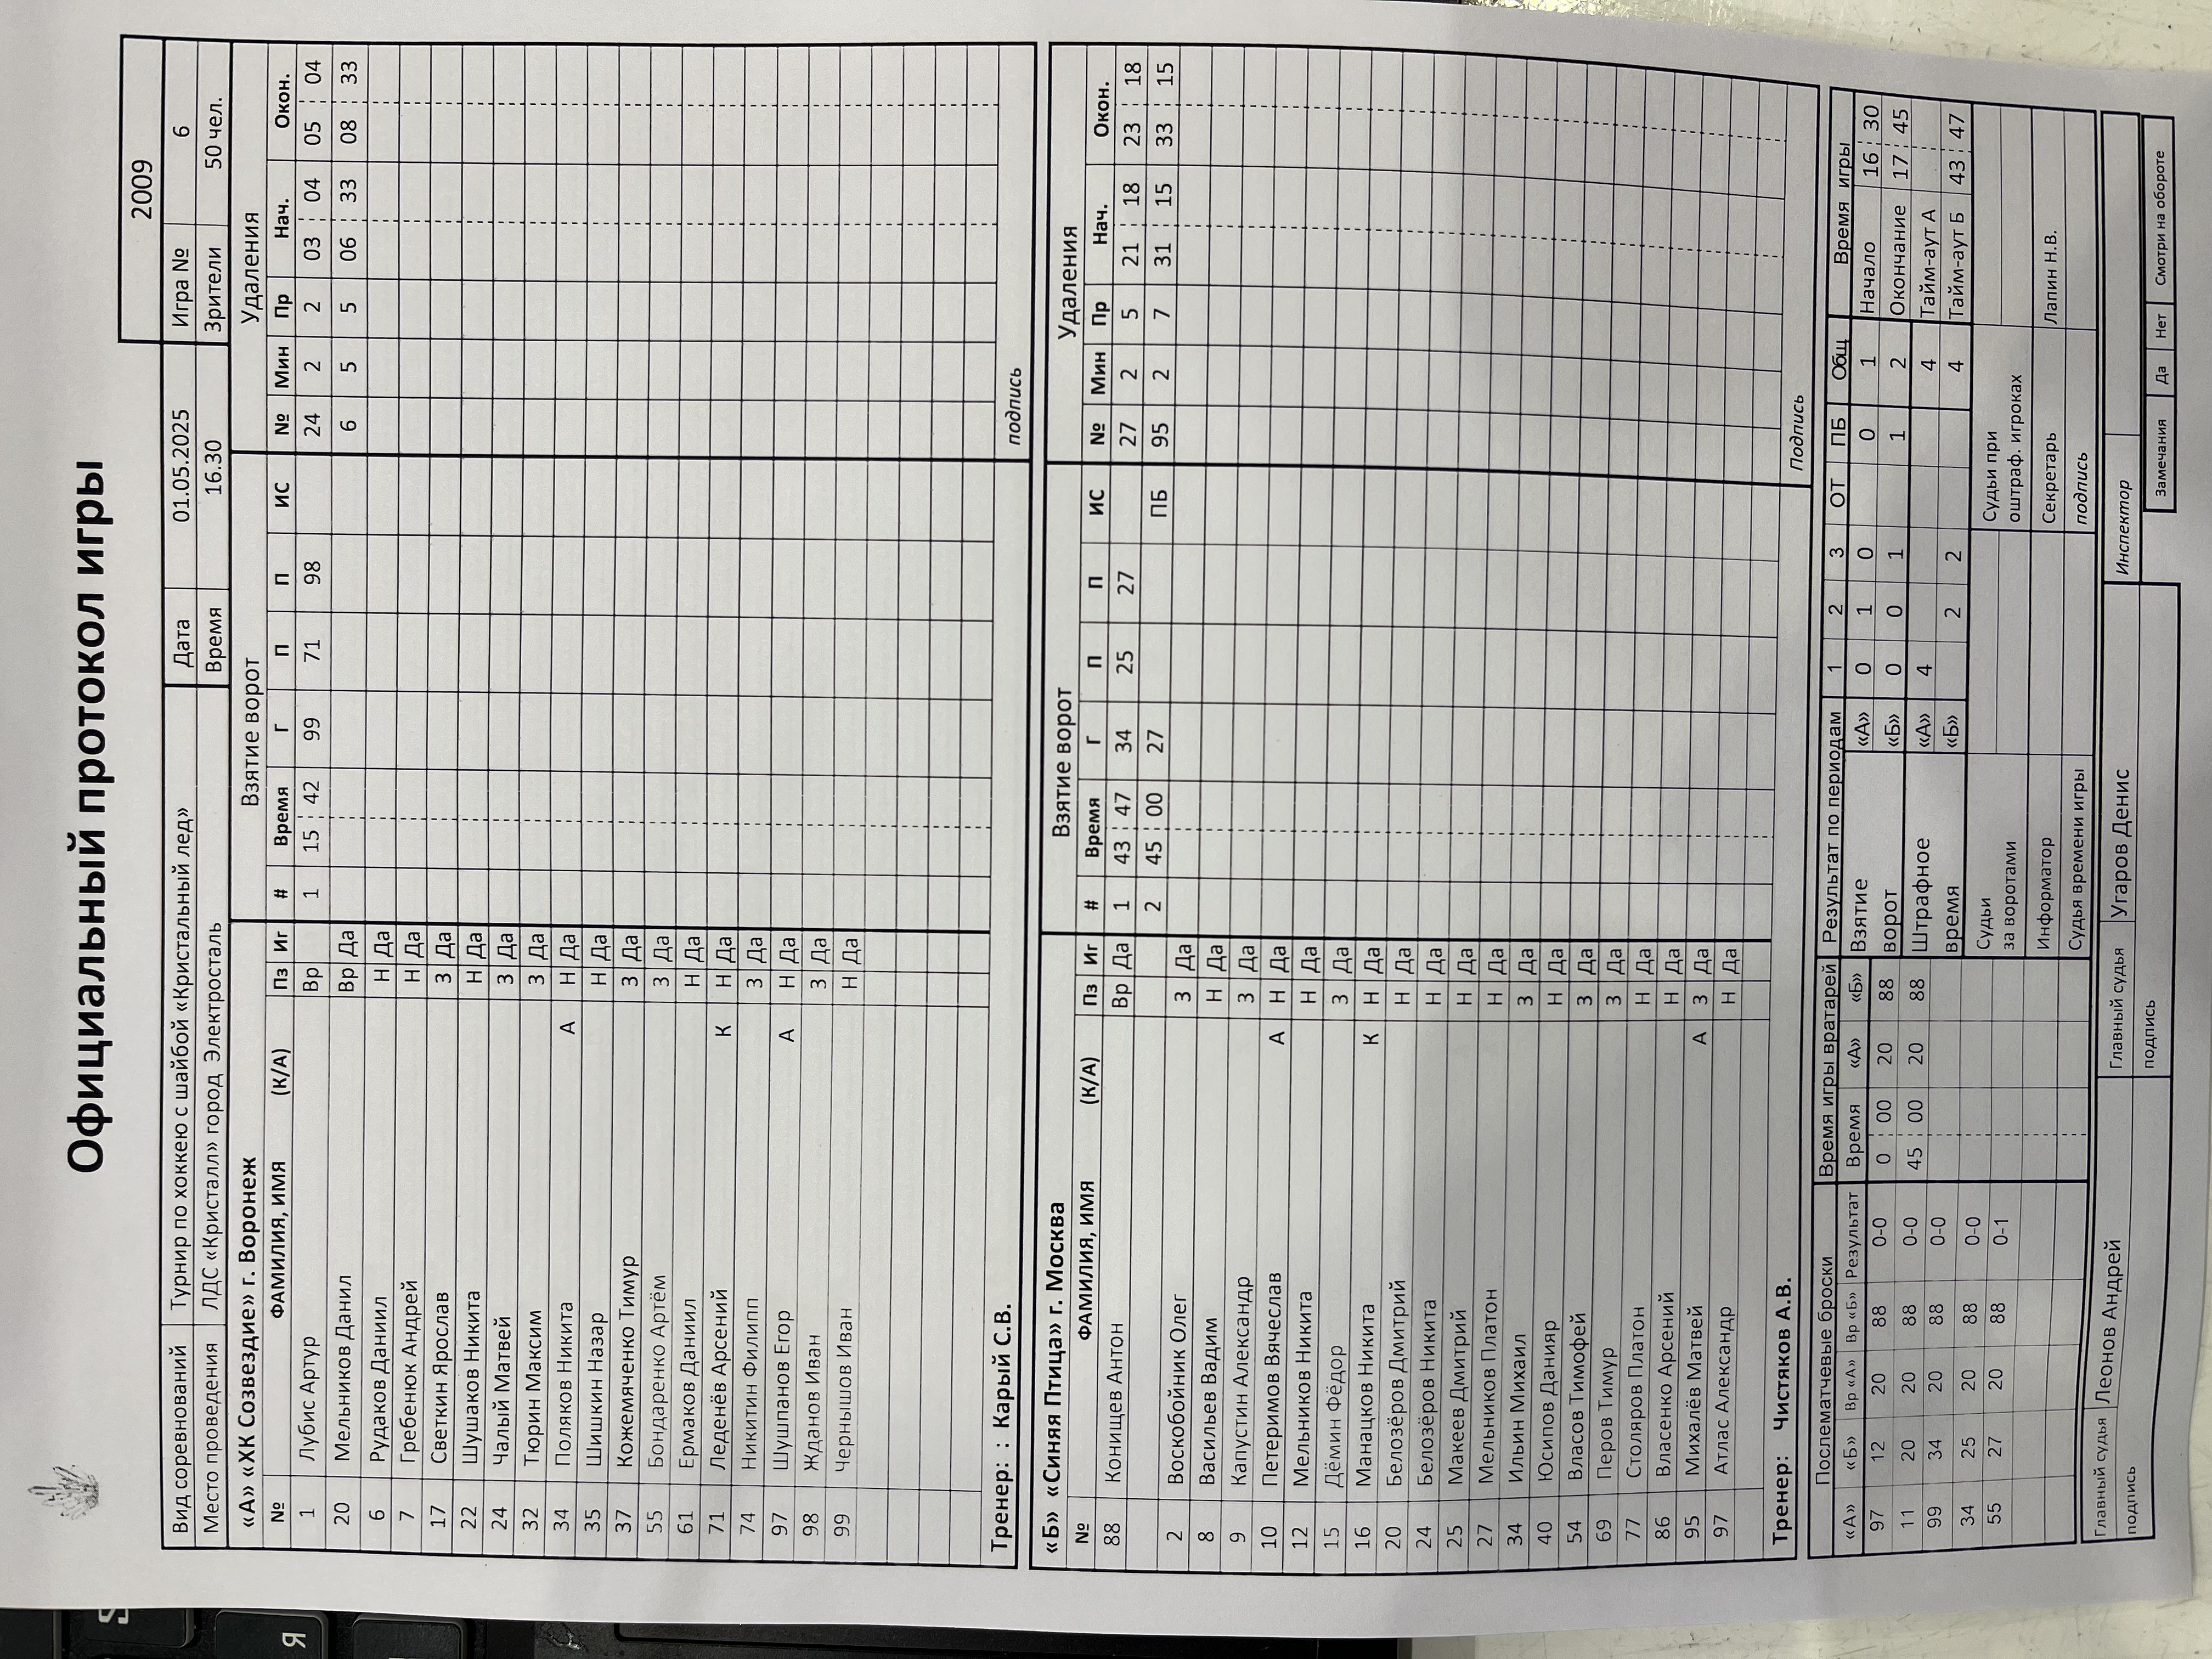 Официальный протокол игры
2009
Вид соревнований Турнир по хоккею с шайбой «Кристальный лед» Дата 01.05.2025 Игра № 6
Место проведения ЛДС «Кристалл» город Электросталь Время 16.30 Зрители 50 чел.
«А» «ХК Созвездие» г. Воронеж Взятие ворот Удаления
№ ФАМИЛИЯ, ИМЯ (К/А) Пз Иг # Время Г П П ИС № Мин Пр Нач. Окон.
1 Лубис Артур Вр 1 15 42 99 71 98 24 2 2 03 04 05 04
20 Мельников Данил Вр Да 6 5 5 06 33 08 33
6 Рудаков Даниил Н Да
7 Гребенюк Андрей Н Да
17 Светкин Ярослав З Да
22 Шушаков Никита Н Да
24 Чалый Матвей З Да
32 Тюрин Максим З Да
34 Поляков Никита А Н Да
35 Шишкин Назар Н Да
37 Кожемяченко Тимур З Да
55 Бондаренко Артём З Да
61 Ермаков Даниил Н Да
71 Леденёв Арсений К Н Да
74 Никитин Филипп З Да
97 Шушпанов Егор А Н Да
98 Жданов Иван З Да
99 Чернышов Иван Н Да
Тренер: : Карый С.В. подпись
«Б» «Синяя Птица» г. Москва Взятие ворот Удаления
№ ФАМИЛИЯ, ИМЯ (К/А) Пз Иг # Время Г П П ИС № Мин Пр Нач. Окон.
88 Конищев Антон Вр Да 1 43 47 34 25 27 27 2 5 21 18 23 18
2 45 00 27 ПБ 95 2 7 31 15 33 15
2 Воскобойник Олег З Да
8 Васильев Вадим Н Да
9 Капустин Александр З Да
10 Петеримов Вячеслав А Н Да
12 Мельников Никита Н Да
15 Дёмин Фёдор З Да
16 Манацков Никита К Н Да
20 Белозёров Дмитрий Н Да
24 Белозёров Никита Н Да
25 Макеев Дмитрий Н Да
27 Мельников Платон Н Да
34 Ильин Михаил З Да
40 Юсипов Данияр Н Да
54 Власов Тимофей З Да
69 Перов Тимур З Да
77 Столяров Платон Н Да
86 Власенко Арсений Н Да
95 Михалёв Матвей А З Да
97 Атлас Александр Н Да
Тренер: Чистяков А.В. Подпись
Послематчевые броски Время игры вратарей Результат по периодам 1 2 3 ОТ ПБ Общ Время игры
«А» «Б» Вр «А» Вр «Б» Результат Время «А» «Б» Взятие «А» 0 1 0 0 1 Начало 16 30
97 12 20 88 0-0 0 00 20 88 ворот «Б» 0 0 1 1 2 Окончание 17 45
11 20 20 88 0-0 45 00 20 88 Штрафное «А» 4 4 Тайм-аут А
99 34 20 88 0-0 время «Б» 2 2 4 Тайм-аут Б 43 47
34 25 20 88 0-0 Судьи за воротами Судьи при оштраф. игроках
55 27 20 88 0-1
Информатор Секретарь Лапин Н.В.
Судья времени игры подпись
Главный судья Леонов Андрей Главный судья Угаров Денис Инспектор
подпись подпись Замечания Да Нет Смотри на обороте
Я